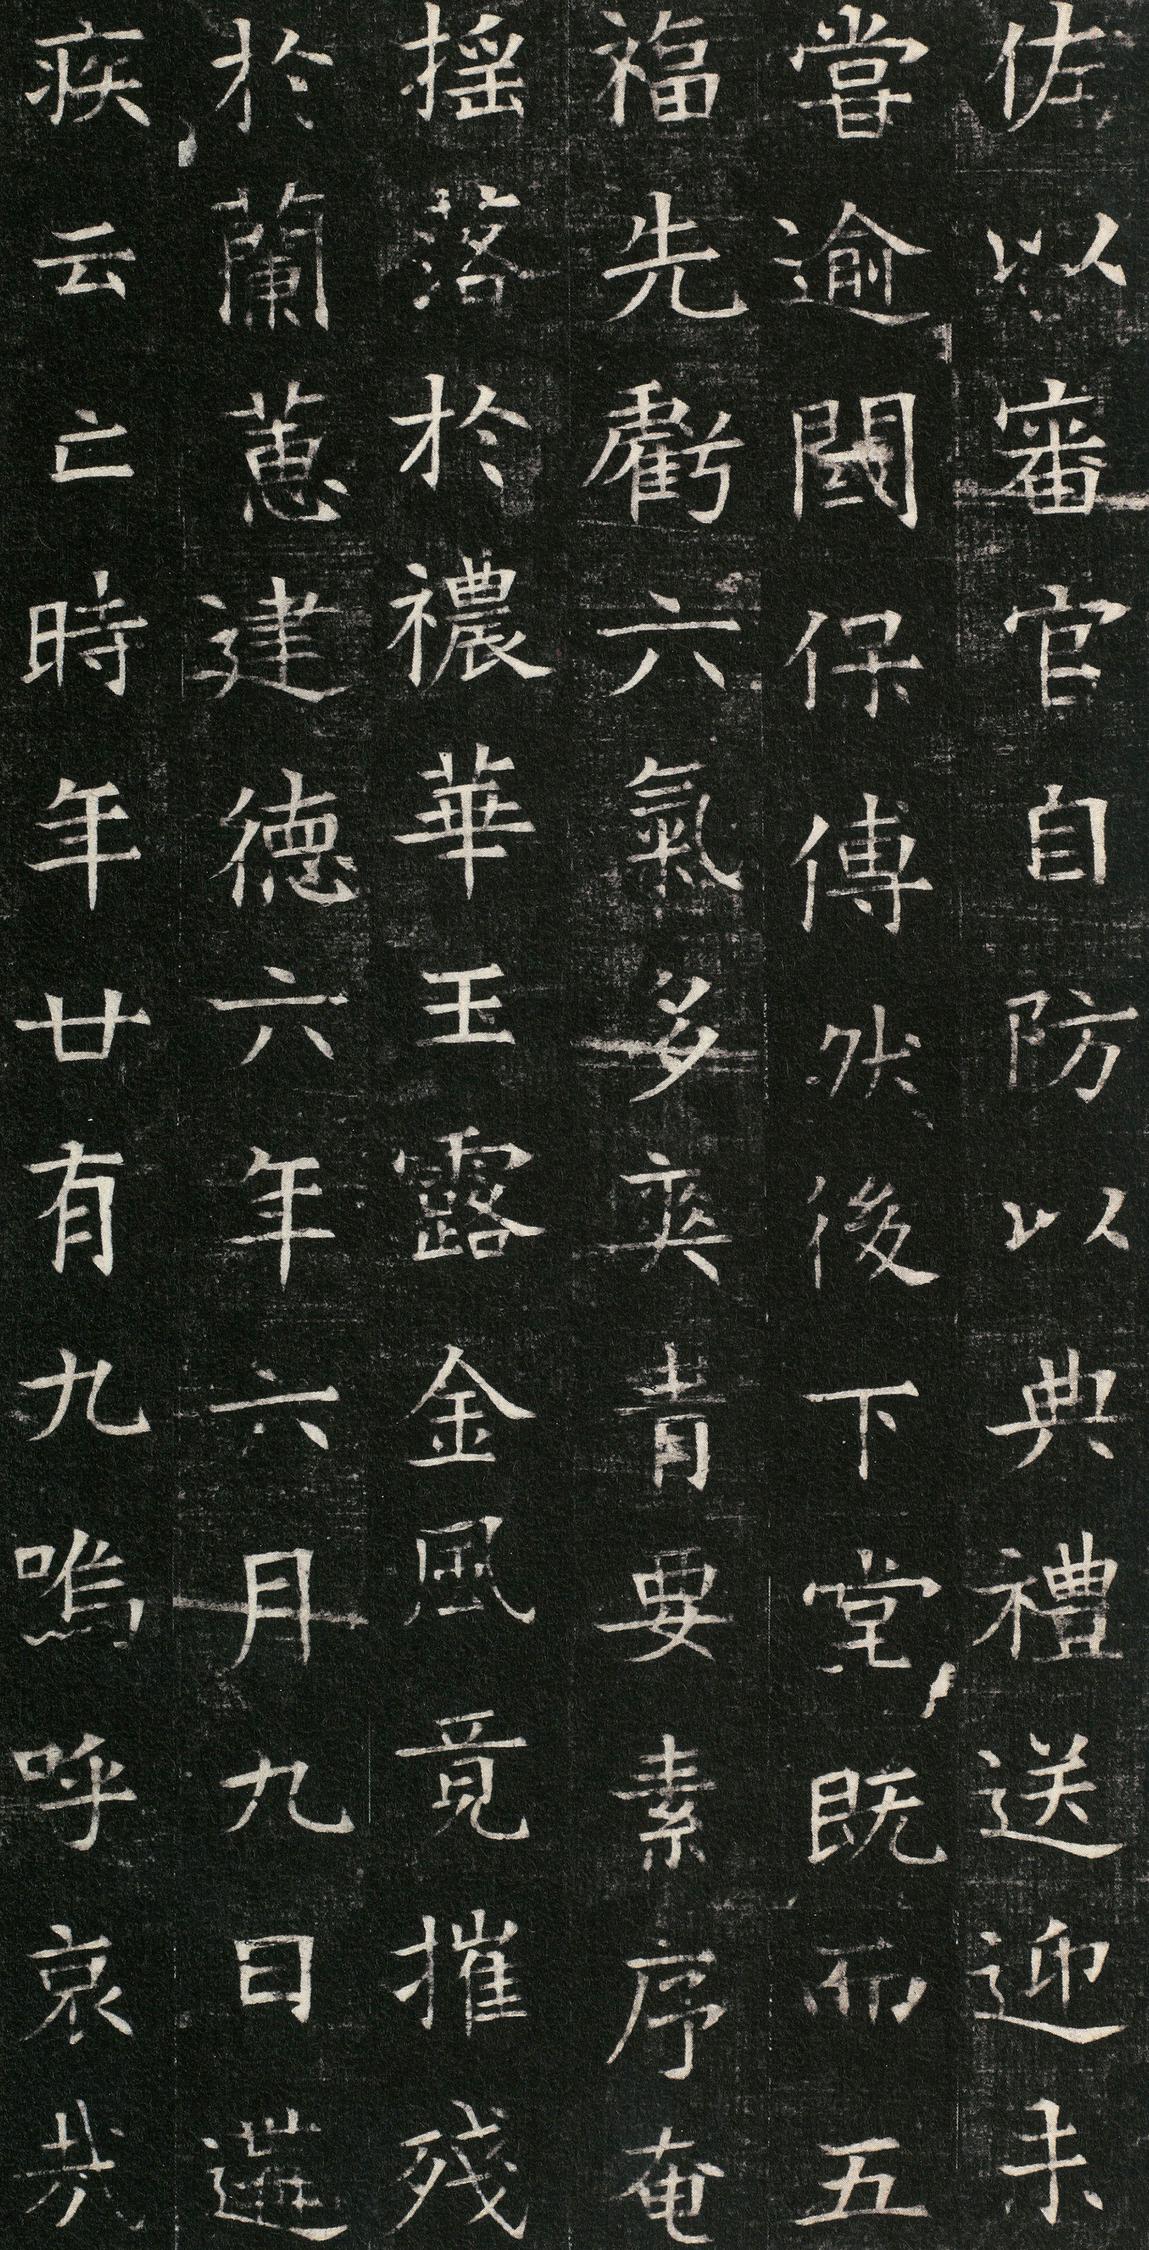 佐以審官自防以典禮送迎未
嘗逾閾保傅然後下堂既而五
福先虧六氣多爽青要素序奄
搖落於襛華玉露金風竟摧殘
於蘭蕙建德六年六月九日遘
疾云亡時年廿有九嗚呼哀哉